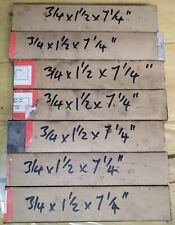 3/4 x 1 1/2 x 7 1/4"
3/4 x 1 1/2 x 7 1/4"
3/4 x 1 1/2 x 7 1/4"
3/4 x 1 1/2 x 7 1/4"
3/4 x 1 1/2 x 7 1/4"
3/4 x 1 1/2 x 7 1/4"
3/4 x 1 1/2 x 7 1/4"